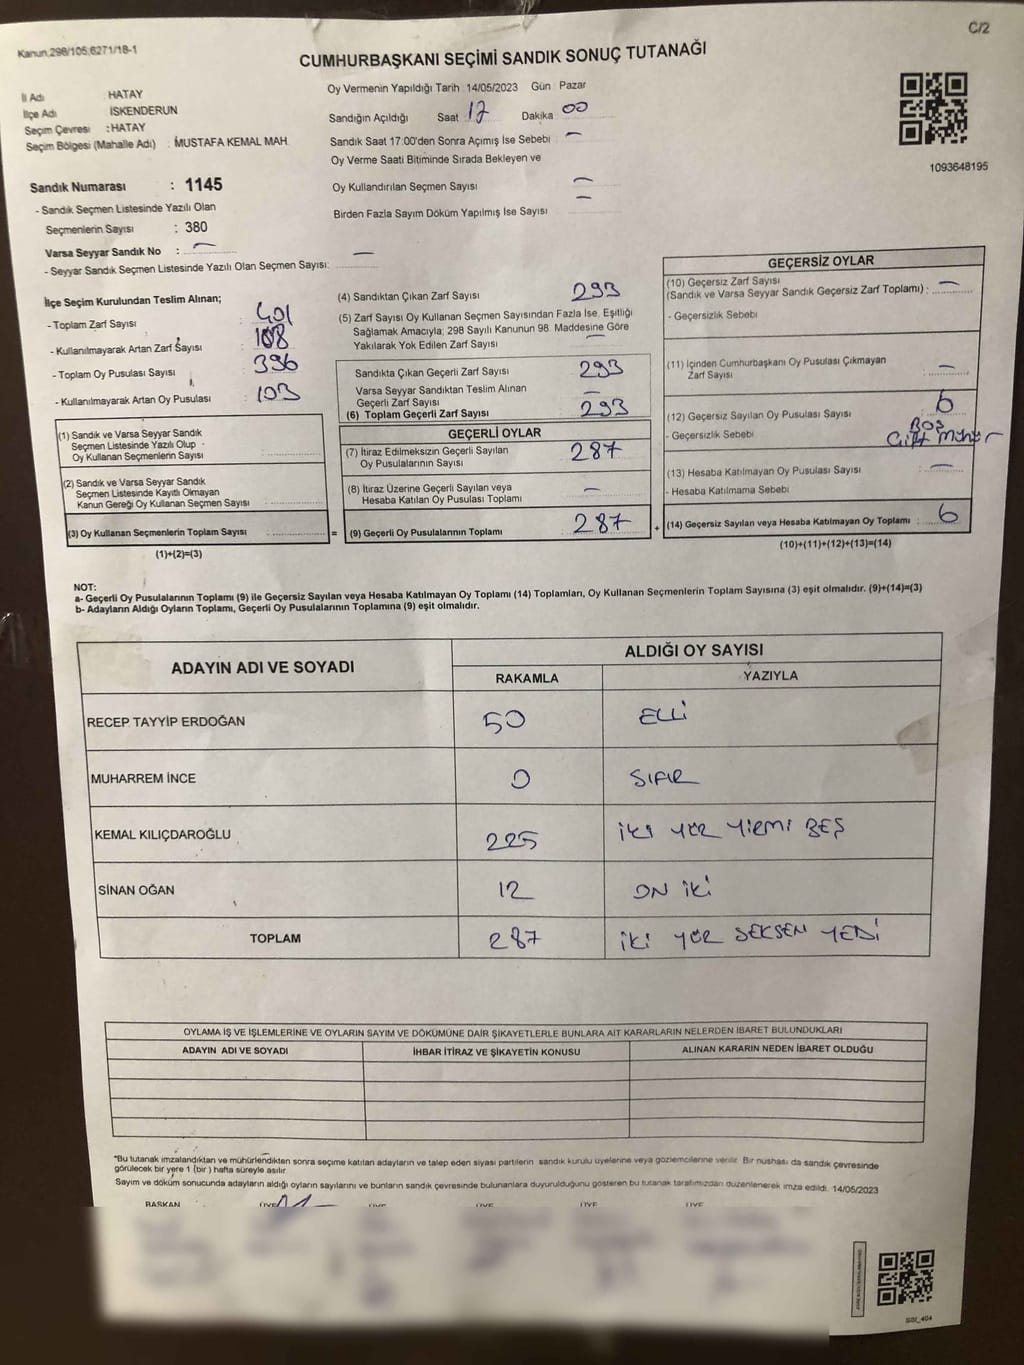 Kanun.298/105.6271/18-1
C/2
CUMHURBAŞKANI SEÇİMİ SANDIK SONUÇ TUTANAĞI
İl Adı : HATAY
İlçe Adı : İSKENDERUN
Seçim Çevresi : HATAY
Seçim Bölgesi (Mahalle Adı) : MUSTAFA KEMAL MAH.
Sandık Numarası : 1145
- Sandık Seçmen Listesinde Yazılı Olan
Seçmenlerin Sayısı : 380
Varsa Seyyar Sandık No : -
- Seyyar Sandık Seçmen Listesinde Yazılı Olan Seçmen Sayısı: -
Oy Vermenin Yapıldığı Tarih 14/05/2023 Gün Pazar
Sandığın Açıldığı Saat 17 Dakika 00
Sandık Saat 17:00'den Sonra Açılmış İse Sebebi -
Oy Verme Saati Bitiminde Sırada Bekleyen ve
Oy Kullandırılan Seçmen Sayısı -
Birden Fazla Sayım Döküm Yapılmış İse Sayısı -
1093648195
İlçe Seçim Kurulundan Teslim Alınan;
- Toplam Zarf Sayısı : 401
- Kullanılmayarak Artan Zarf Sayısı : 108
- Toplam Oy Pusulası Sayısı : 396
- Kullanılmayarak Artan Oy Pusulası : 103
(1) Sandık ve Varsa Seyyar Sandık
Seçmen Listesinde Yazılı Olup
Oy Kullanan Seçmenlerin Sayısı :
(2) Sandık ve Varsa Seyyar Sandık
Seçmen Listesinde Kayıtlı Olmayan
Kanun Gereği Oy Kullanan Seçmen Sayısı :
(3) Oy Kullanan Seçmenlerin Toplam Sayısı :
(1)+(2)=(3)
(4) Sandıktan Çıkan Zarf Sayısı 293
(5) Zarf Sayısı Oy Kullanan Seçmen Sayısından Fazla İse, Eşitliği
Sağlamak Amacıyla; 298 Sayılı Kanunun 98. Maddesine Göre
Yakılarak Yok Edilen Zarf Sayısı -
Sandıkta Çıkan Geçerli Zarf Sayısı 293
Varsa Seyyar Sandıktan Teslim Alınan
Geçerli Zarf Sayısı -
(6) Toplam Geçerli Zarf Sayısı 293
GEÇERLİ OYLAR
(7) İtiraz Edilmeksizin Geçerli Sayılan
Oy Pusulalarının Sayısı 287
(8) İtiraz Üzerine Geçerli Sayılan veya
Hesaba Katılan Oy Pusulası Toplamı -
= (9) Geçerli Oy Pusulalarının Toplamı 287
GEÇERSİZ OYLAR
(10) Geçersiz Zarf Sayısı
(Sandık ve Varsa Seyyar Sandık Geçersiz Zarf Toplamı) : -
- Geçersizlik Sebebi
(11) İçinden Cumhurbaşkanı Oy Pusulası Çıkmayan
Zarf Sayısı : -
(12) Geçersiz Sayılan Oy Pusulası Sayısı : 6
- Geçersizlik Sebebi BOŞ
Çift Mühür
(13) Hesaba Katılmayan Oy Pusulası Sayısı : -
- Hesaba Katılmama Sebebi
+ (14) Geçersiz Sayılan veya Hesaba Katılmayan Oy Toplamı : 6
(10)+(11)+(12)+(13)=(14)
NOT:
a- Geçerli Oy Pusulalarının Toplamı (9) ile Geçersiz Sayılan veya Hesaba Katılmayan Oy Toplamı (14) Toplamları, Oy Kullanan Seçmenlerin Toplam Sayısına (3) eşit olmalıdır. (9)+(14)=(3)
b- Adayların Aldığı Oyların Toplamı, Geçerli Oy Pusulalarının Toplamına (9) eşit olmalıdır.
ADAYIN ADI VE SOYADI
ALDIĞI OY SAYISI
RAKAMLA YAZIYLA
RECEP TAYYİP ERDOĞAN 50 ELLİ
MUHARREM İNCE 0 SIFIR
KEMAL KILIÇDAROĞLU 225 İKİ YÜZ YİRMİ BEŞ
SİNAN OĞAN 12 ON İKİ
TOPLAM 287 İKİ YÜZ SEKSEN YEDİ
OYLAMA İŞ VE İŞLEMLERİNE VE OYLARIN SAYIM VE DÖKÜMÜNE DAİR ŞİKAYETLERLE BUNLARA AİT KARARLARIN NELERDEN İBARET BULUNDUKLARI
ADAYIN ADI VE SOYADI İHBAR İTİRAZ VE ŞİKAYETİN KONUSU ALINAN KARARIN NEDEN İBARET OLDUĞU
*Bu tutanak imzalandıktan ve mühürlendikten sonra seçime katılan adayların ve talep eden siyasi partilerin sandık kurulu üyelerine veya gözlemcilerine verilir. Bir nüshası da sandık çevresinde
görülecek bir yere 1 (bir) hafta süreyle asılır.
Sayım ve döküm sonucunda adayların aldığı oyların sayılarını ve bunların sandık çevresinde bulunanlara duyurulduğunu gösteren bu tutanak tarafımızdan düzenlenerek imza edildi. 14/05/2023
BAŞKAN ÜYE ÜYE ÜYE ÜYE ÜYE